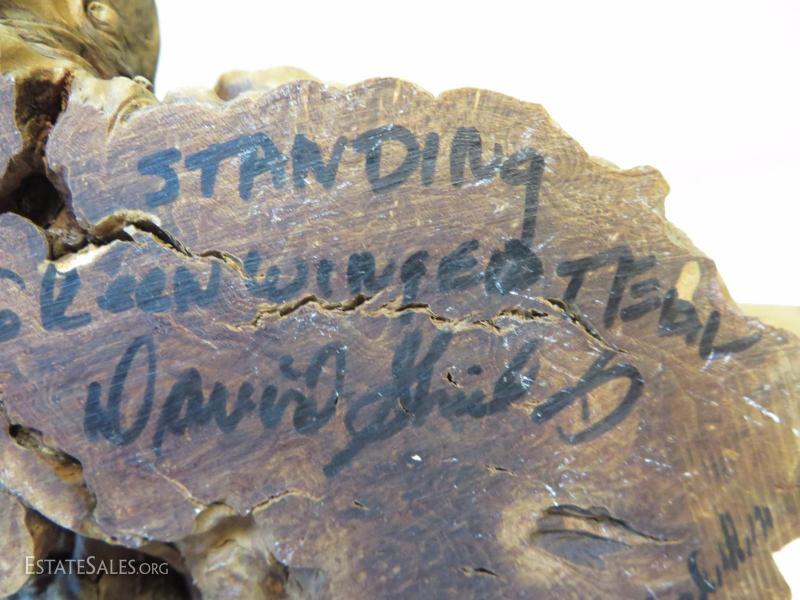 STANDING
GREEN WINGED TEAL
DAVID Shields
ESTATESALES.ORG